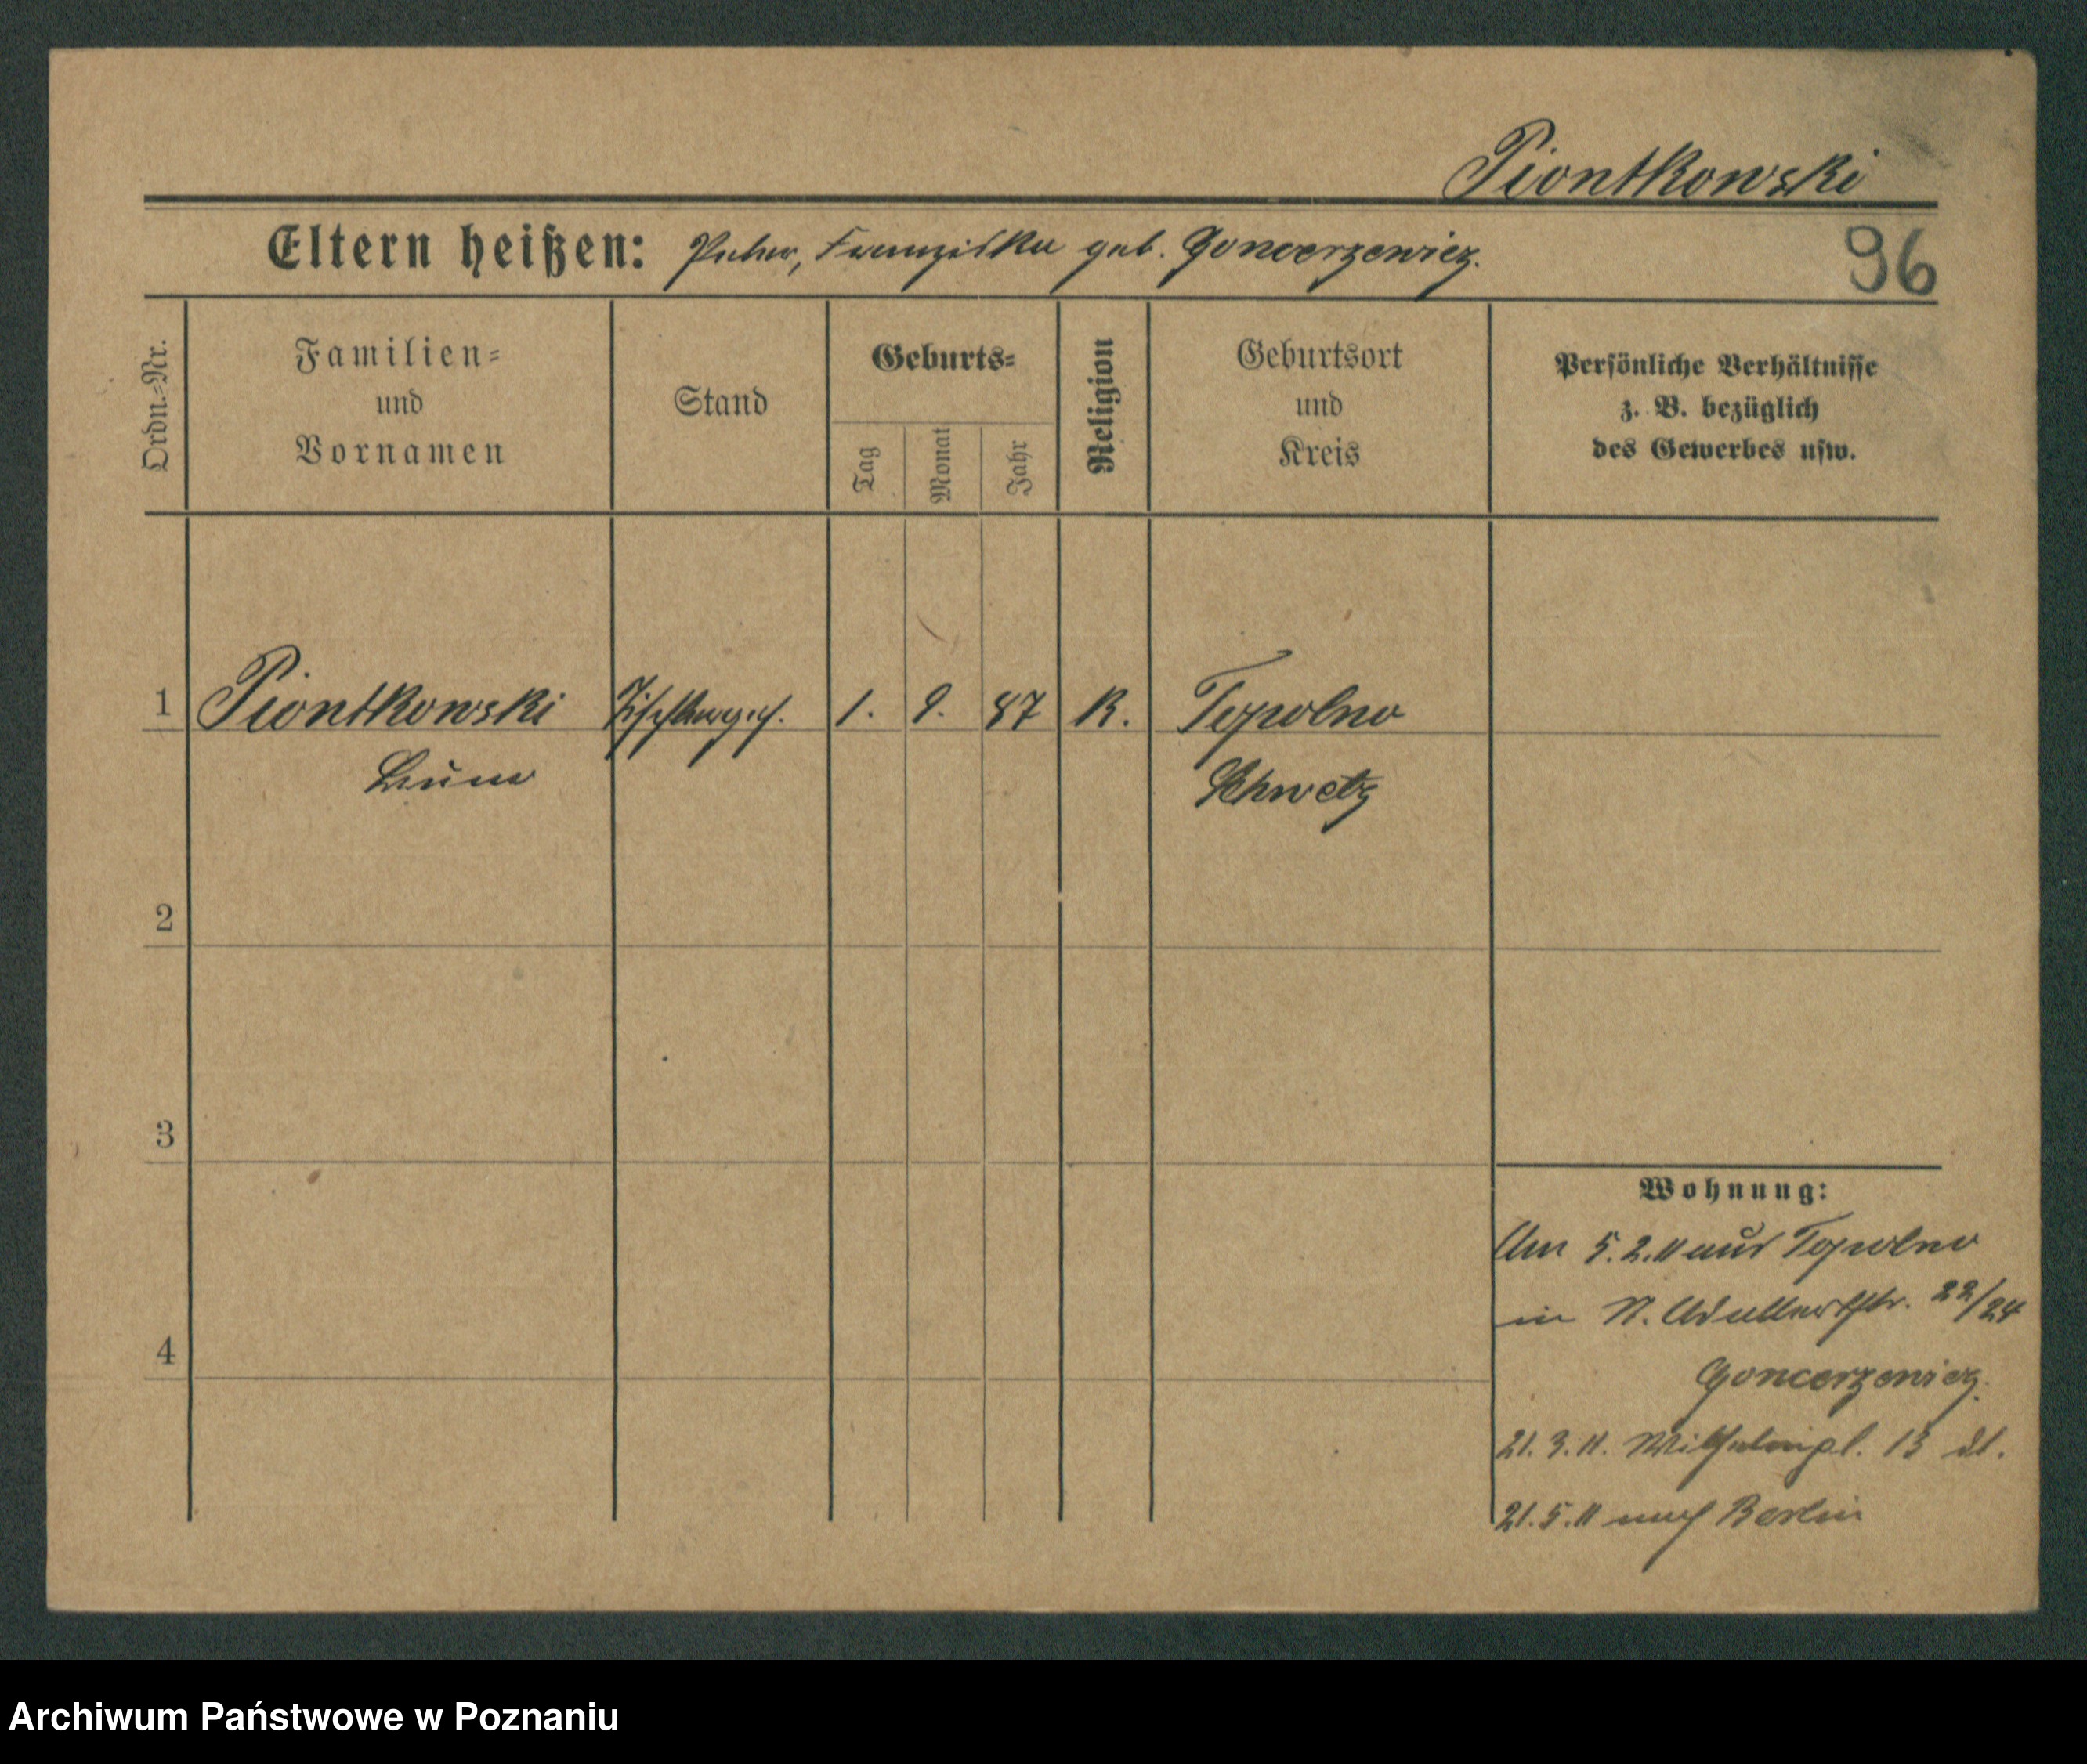 Piontkowski
Eltern heißen: Peter, Franziska geb. Goncerzewicz.
96
Ordn.=Nr.
Familien=
und
Vornamen
Stand
Geburts=
Tag
Monat
Jahr
Religion
Geburtsort
und
Kreis
Persönliche Verhältnisse
z. B. bezüglich
des Gewerbes usw.
1 Piontkowski Tischlerges. 1. 9. 87 K. Topolno
Schwetz
2
3
4
Wohnung:
Am 5.2.11 aus Topolno
in N. Adalbertstr. 22/24
Goncerzewicz.
21.3.11. Wilhelmpl. 13
21.5.11 nach Berlin
Archiwum Państwowe w Poznaniu